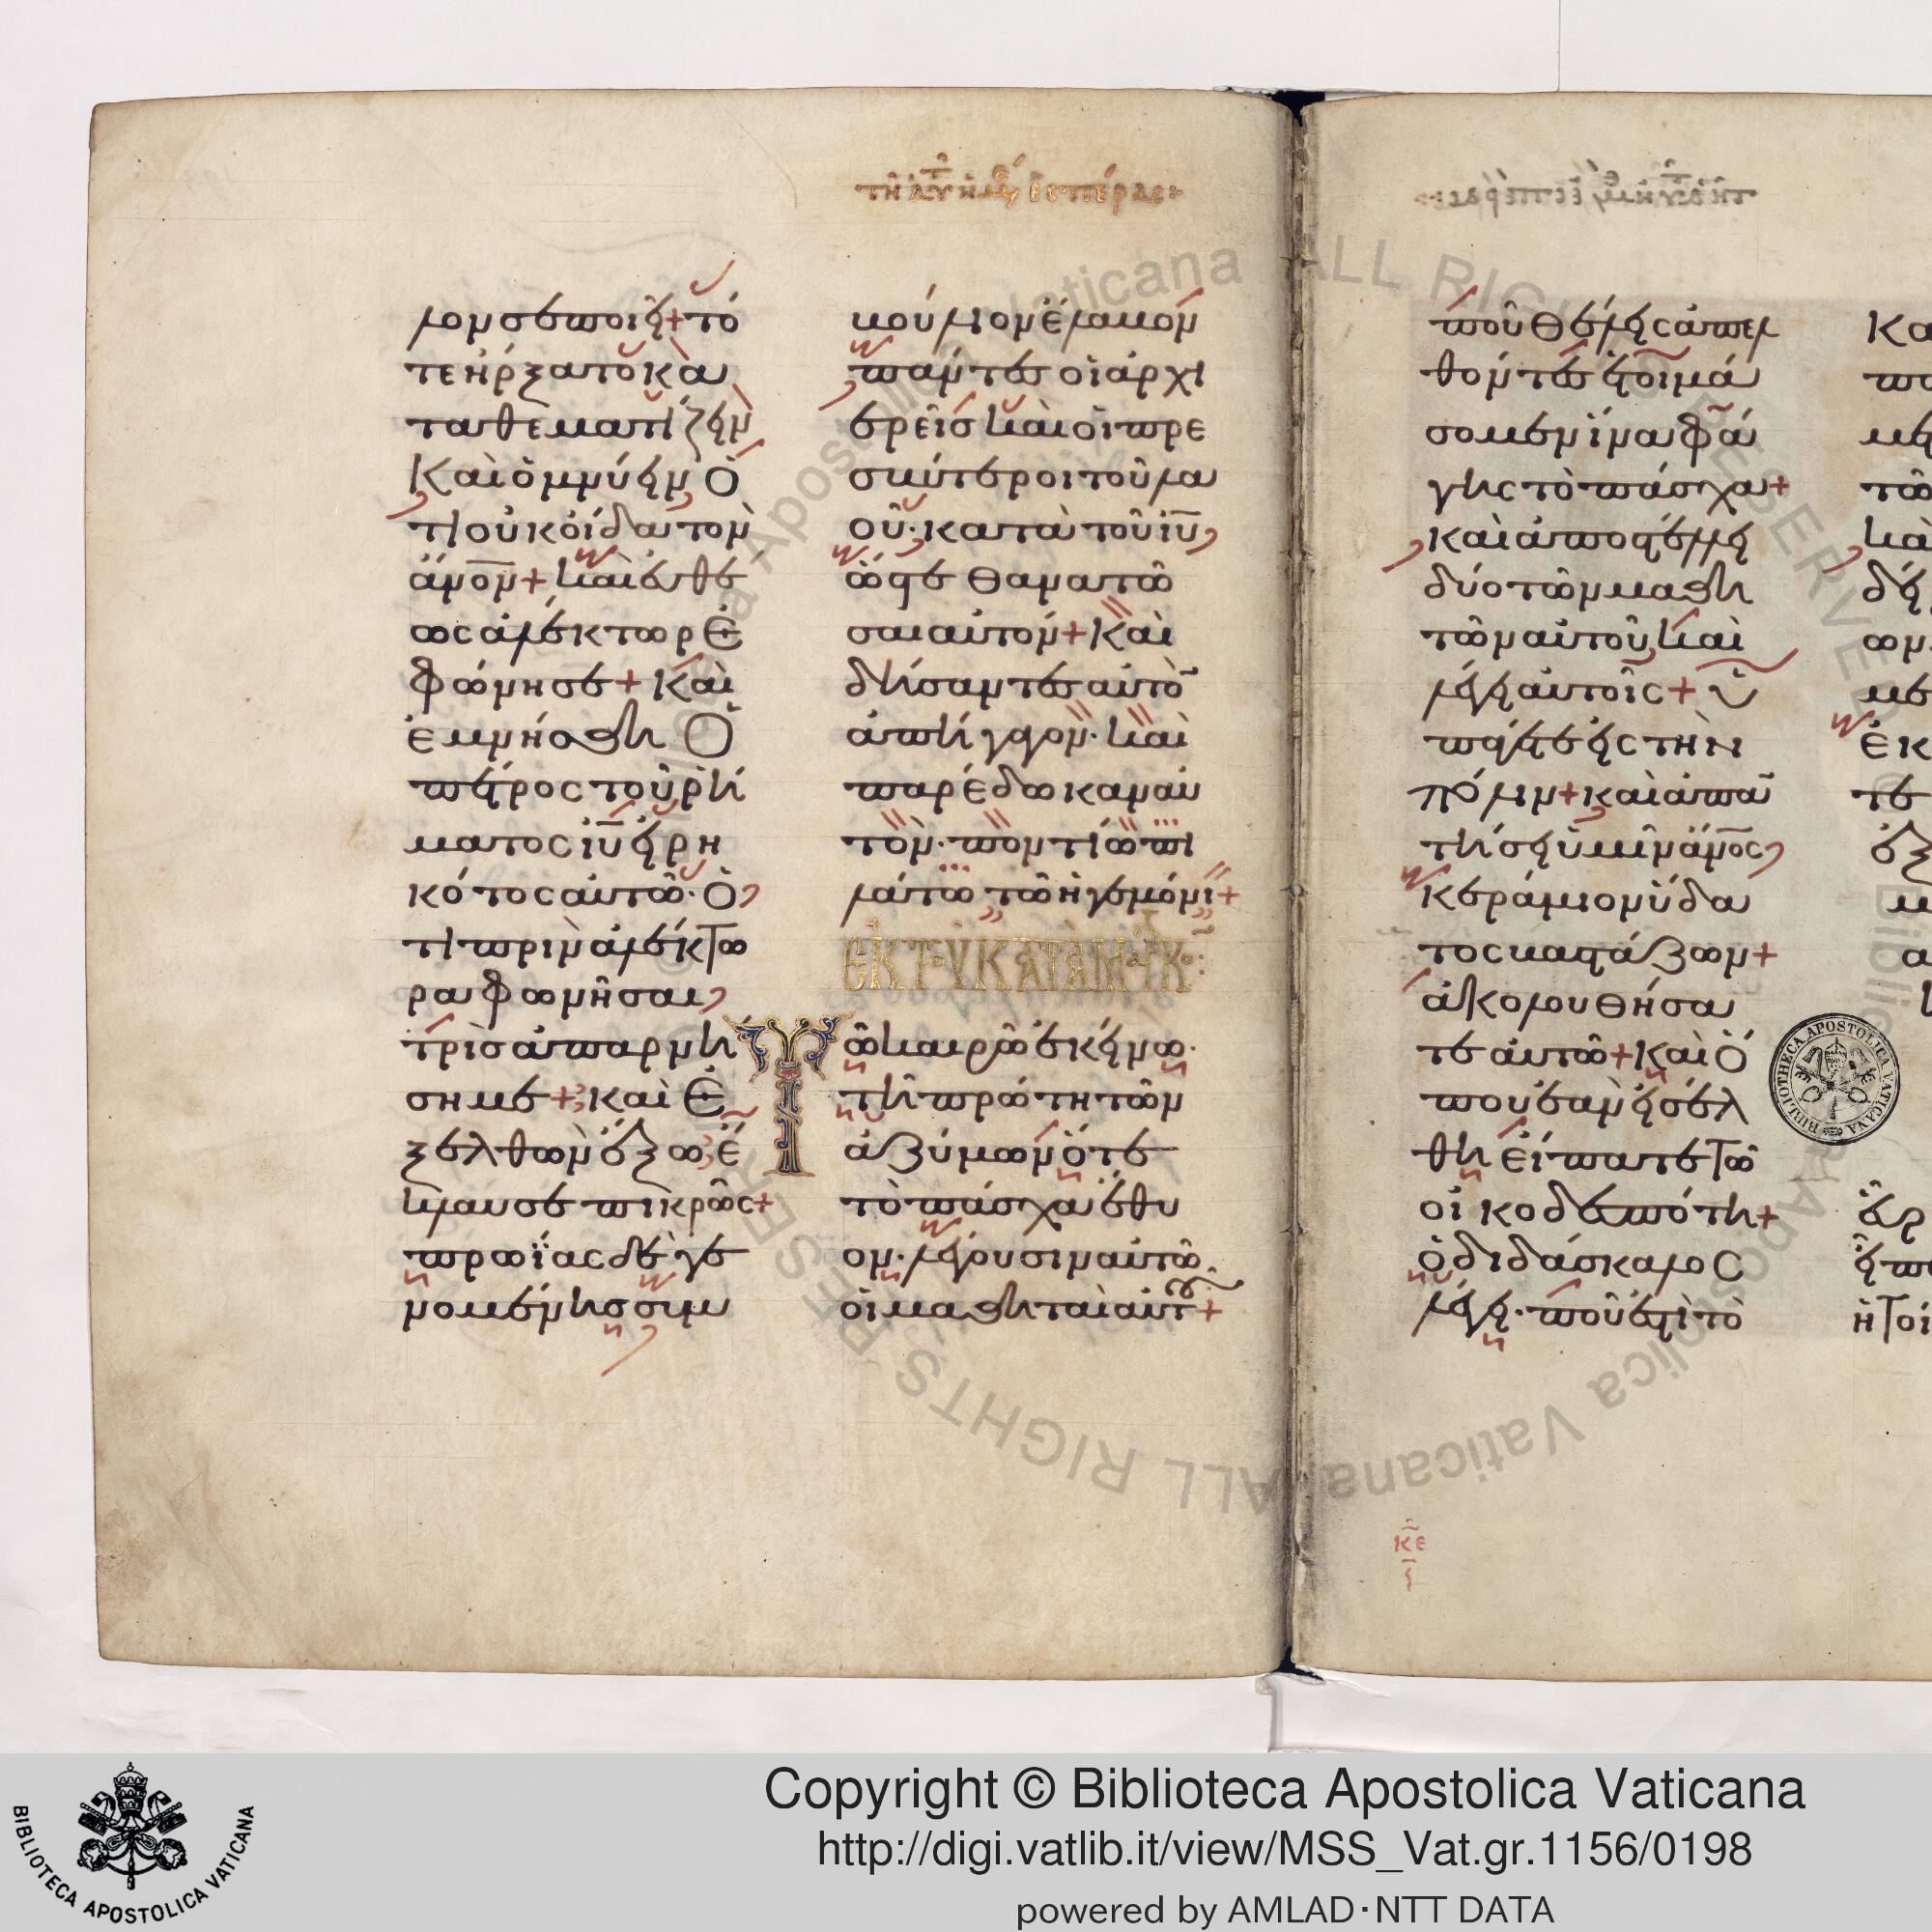 τῆ ἁγ ἡμε ἑσπέρας
λονσε ποιεῖ + τό
τε ἤρξατο κα
ταθεματίζειν
Καὶ ὀμνύειν Ὅ
τι οὐκ οἶδα τὸν
ἄνον + καὶ εὐθέ
ως ἀλέκτωρ Ἐ
φώνησε + Καὶ
ἐμνήσθη Ὁ
πέτρος τοῦ ῥή
ματος ἰῡ εἰρη
κότος αὐτῶ · Ὅ
τι πρὶν ἀλέκτο
ρα φωνῆσαι
τρὶς ἀπαρνή
ση με + καὶ Ἐ
ξελθὼν ἔξω ἔ
κλαυσε πικρῶς +
πρωΐας δὲ γε
νομένης συμ
βούλιον ἔλαβον
πάντες οἱ ἀρχι
ερεῖς καὶ οἱ πρε
σβύτεροι τοῦ λα
οῦ · κατὰ τοῦ ἰῡ
ὥστε Θανατῶ
σαι αὐτόν + Καὶ
δήσαντες αὐτὸ
ἀπήγαγον · καὶ
παρέδωκαν αὐ
τὸν · ποντίω πι
λάτω τῶ ἡγεμόνι +
ἐκ τοῦ κατὰ Μάρκο
Τῶ καιρῶ ἐκείνω ·
τῆ πρώτη τῶν
ἀζύμων ὅτε
τὸ πάσχα ἔθυ
ον · λέγουσιν αὐτῶ
οἱ μαθηταὶ αὐτ +
ποῦ Θέλεις ἀπελ
θόντες ἑτοιμά
σομεν ἵνα φά
γης τὸ πάσχα +
καὶ ἀποστέλλει
δύο τῶν μαθη
τῶν αὐτοῦ καὶ
λέγει αὐτοῖς + ὑ
πάγετε εἰς τὴν
πόλιν + καὶ ἀπα
τήσει ὑμῖν ἄνος
κεράμιον ὕδα
τος βαστάζων +
ἀκολουθήσα
τε αὐτῶ + Καὶ Ὅ
που ἐὰν εἰσέλ
θη εἴπατε τῶ
οἰκοδεσπότη +
ὁ διδάσκαλος
λέγει · ποῦ ἐστὶ τὸ
κε
Copyright © Biblioteca Apostolica Vaticana
http://digi.vatlib.it/view/MSS_Vat.gr.1156/0198
powered by AMLAD·NTT DATA
BIBLIOTECA APOSTOLICA VATICANA